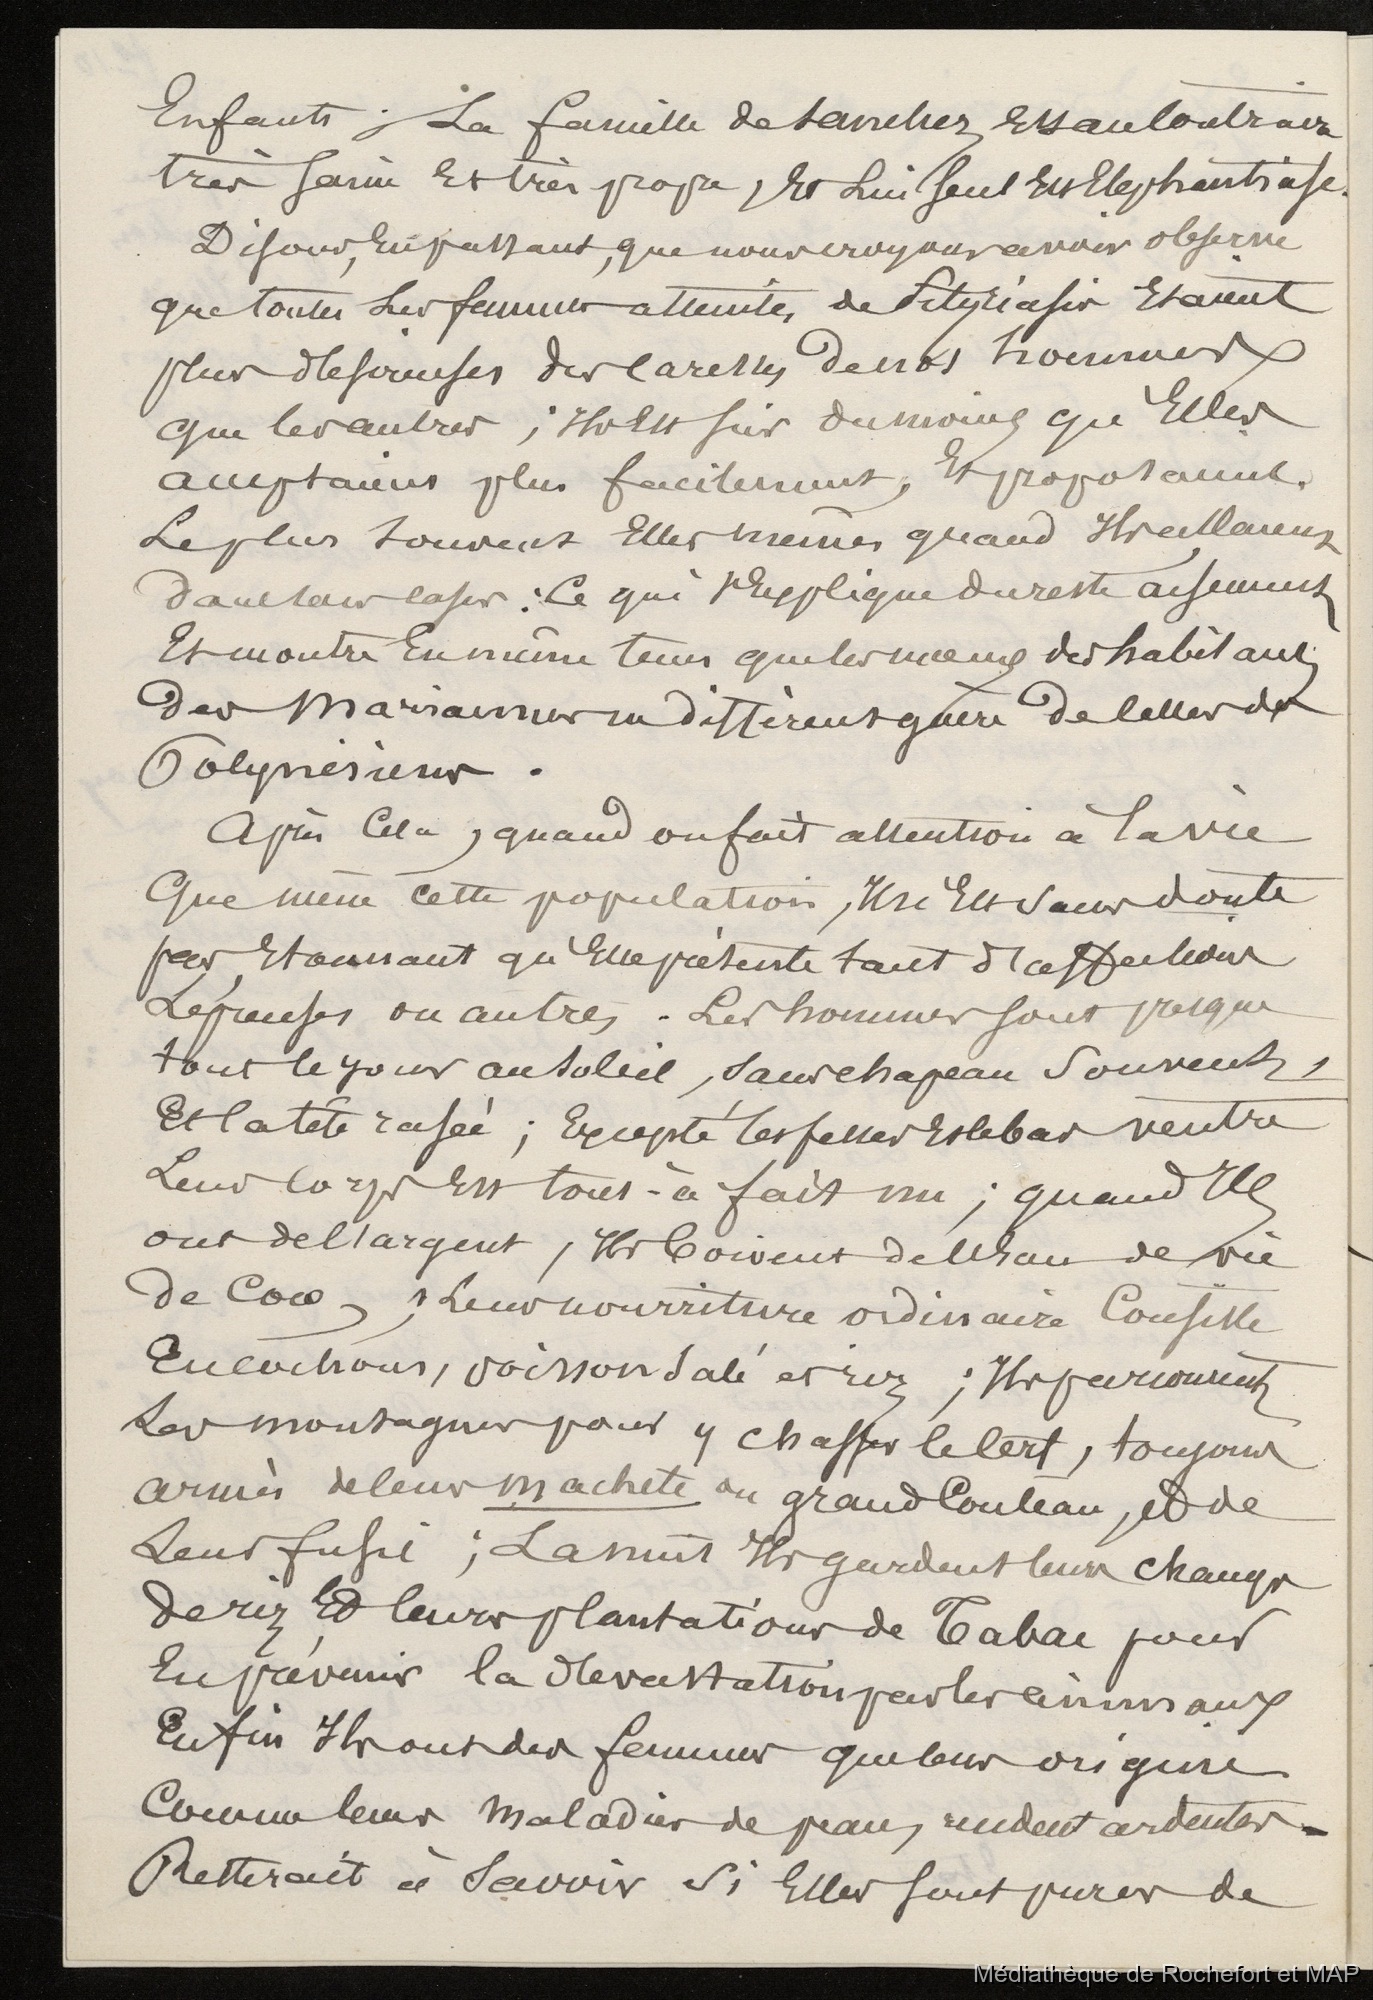 Enfants ; La famille de Sanchez est au contraire
très saine et très propre, et lui seul est Elephantiase.
Disons, en passant, que nous croyons avoir observé
que toutes les femmes atteintes de Pityriasis étaient
plus désireuses des caresses de nos hommes
que les autres ; il est sûr du moins qu'Elles
acceptaient plus facilement, et proposaient
Le plus souvent Elles mêmes quand ils allaient
dans leurs cases : Ce qui s'Explique du reste aisement
Et montre En même tems que les moeurs des habitans
des Mariannes ne différent guère de celles des
Polynésiens .
Après Cela, quand on fait attention à la vie
Que mène cette population, il n'Est sans doute
pas Etonnant qu'Elle présente tant d'affections
Lépreuses ou autres . Les hommes sont presque
tout le jour au soleil, sans chapeau souvent,
Et la tête rasée ; Excepté les fesses et le bas ventre
Leur corps est tout-à fait nu ; quand ils
ont de l'argent, ils boivent de l'Eau de vie
de Coco, ; Leur nourriture ordinaire Consiste
En cochons, poisson salé et riz ; ils parcourent
Les montagnes pour y chasser le cerf, toujours
armés de leur machete ou grand Couteau, et de
Leur fusil ; La nuit ils gardent leurs champs
de riz et leurs plantations de Tabac pour
En prévenir la dévastation par les animaux
Enfin ils ont des femmes que leur origine
Comme leurs maladies de peau, rendent ardentes.
Resterait à savoir si Elles sont pures de
Médiathèque de Rochefort et MAP